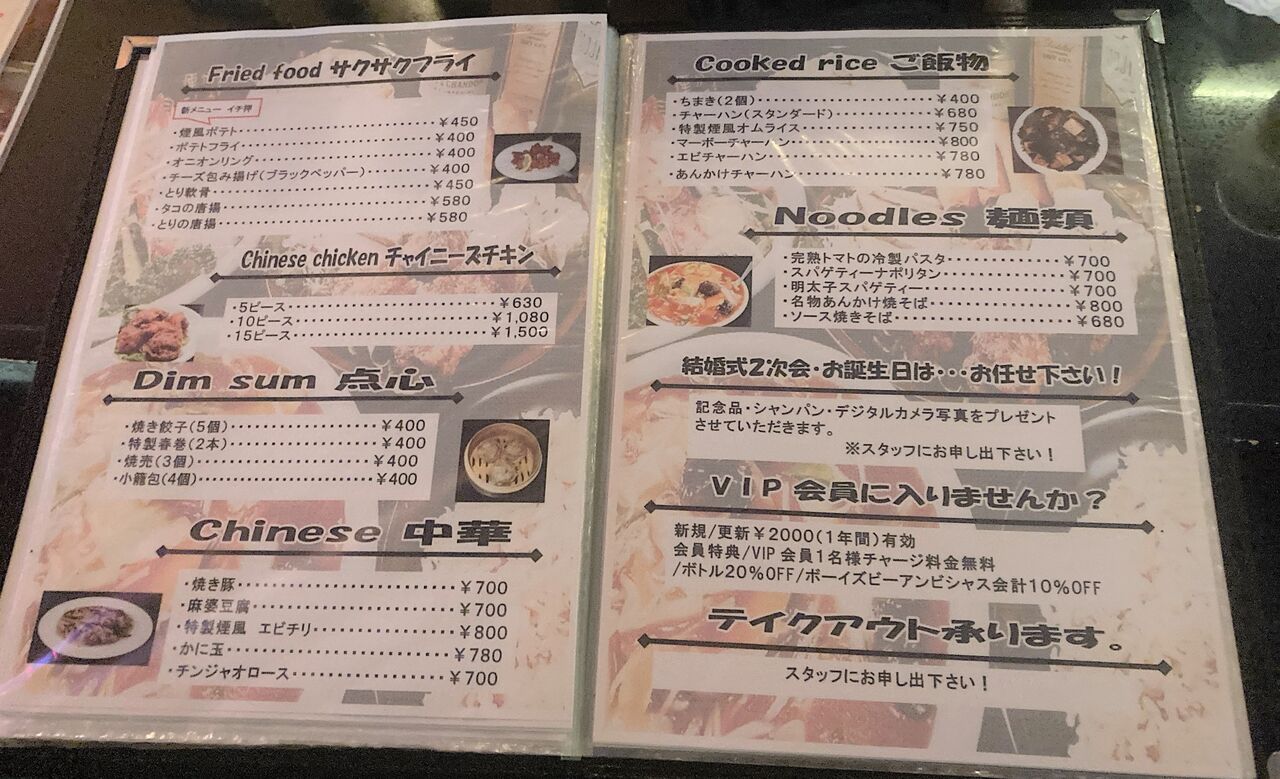 Fried food サクサクフライ
新メニュー イチ押
・煙風ポテト ¥450
・ポテトフライ ¥400
・オニオンリング ¥400
・チーズ包み揚げ(ブラックペッパー) ¥400
・とり軟骨 ¥450
・タコの唐揚 ¥580
・とりの唐揚 ¥580
Chinese chicken チャイニーズチキン
・5ピース ¥630
・10ピース ¥1,080
・15ピース ¥1,500
Dim sum 点心
・焼き餃子(5個) ¥400
・特製春巻(2本) ¥400
・焼売(3個) ¥400
・小籠包(4個) ¥400
Chinese 中華
・焼き豚 ¥700
・麻婆豆腐 ¥700
・特製煙風 エビチリ ¥800
・かに玉 ¥780
・チンジャオロース ¥700
Cooked rice ご飯物
・ちまき(2個) ¥400
・チャーハン(スタンダード) ¥680
・特製煙風オムライス ¥750
・マーボーチャーハン ¥800
・エビチャーハン ¥780
・あんかけチャーハン ¥780
Noodles 麺類
・完熟トマトの冷製パスタ ¥700
・スパゲティーナポリタン ¥700
・明太子スパゲティー ¥700
・名物あんかけ焼そば ¥800
・ソース焼きそば ¥680
結婚式2次会・お誕生日は・・・お任せ下さい!
記念品・シャンパン・デジタルカメラ写真をプレゼント
させていただきます。
※スタッフにお申し出下さい!
VIP 会員に入りませんか?
新規/更新¥2000(1年間)有効
会員特典/VIP 会員1名様チャージ料金無料
/ボトル20%OFF/ボーイズビーアンビシャス会計10%OFF
テイクアウト承ります。
スタッフにお申し出下さい!